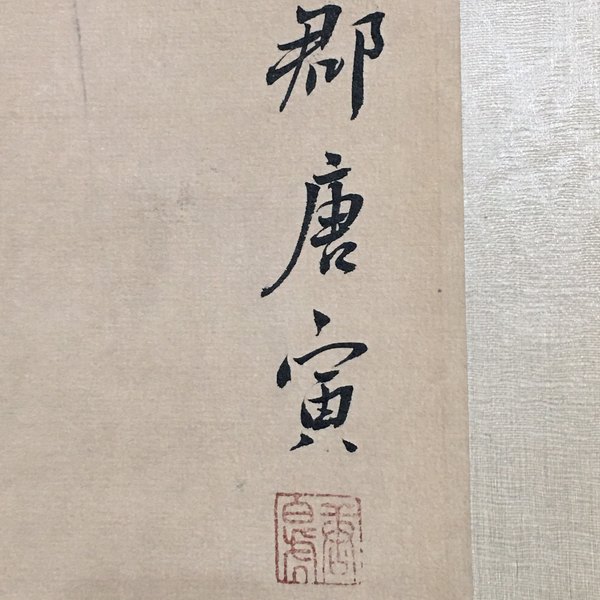 郡唐寅